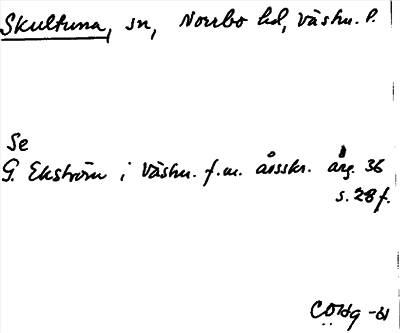 Skultuna, sn, Norrbo hd, Västm. l.
Se
G. Ekström i Västm. f.m. årsskr. årg. 36
s. 28 f.
CÖHg -61